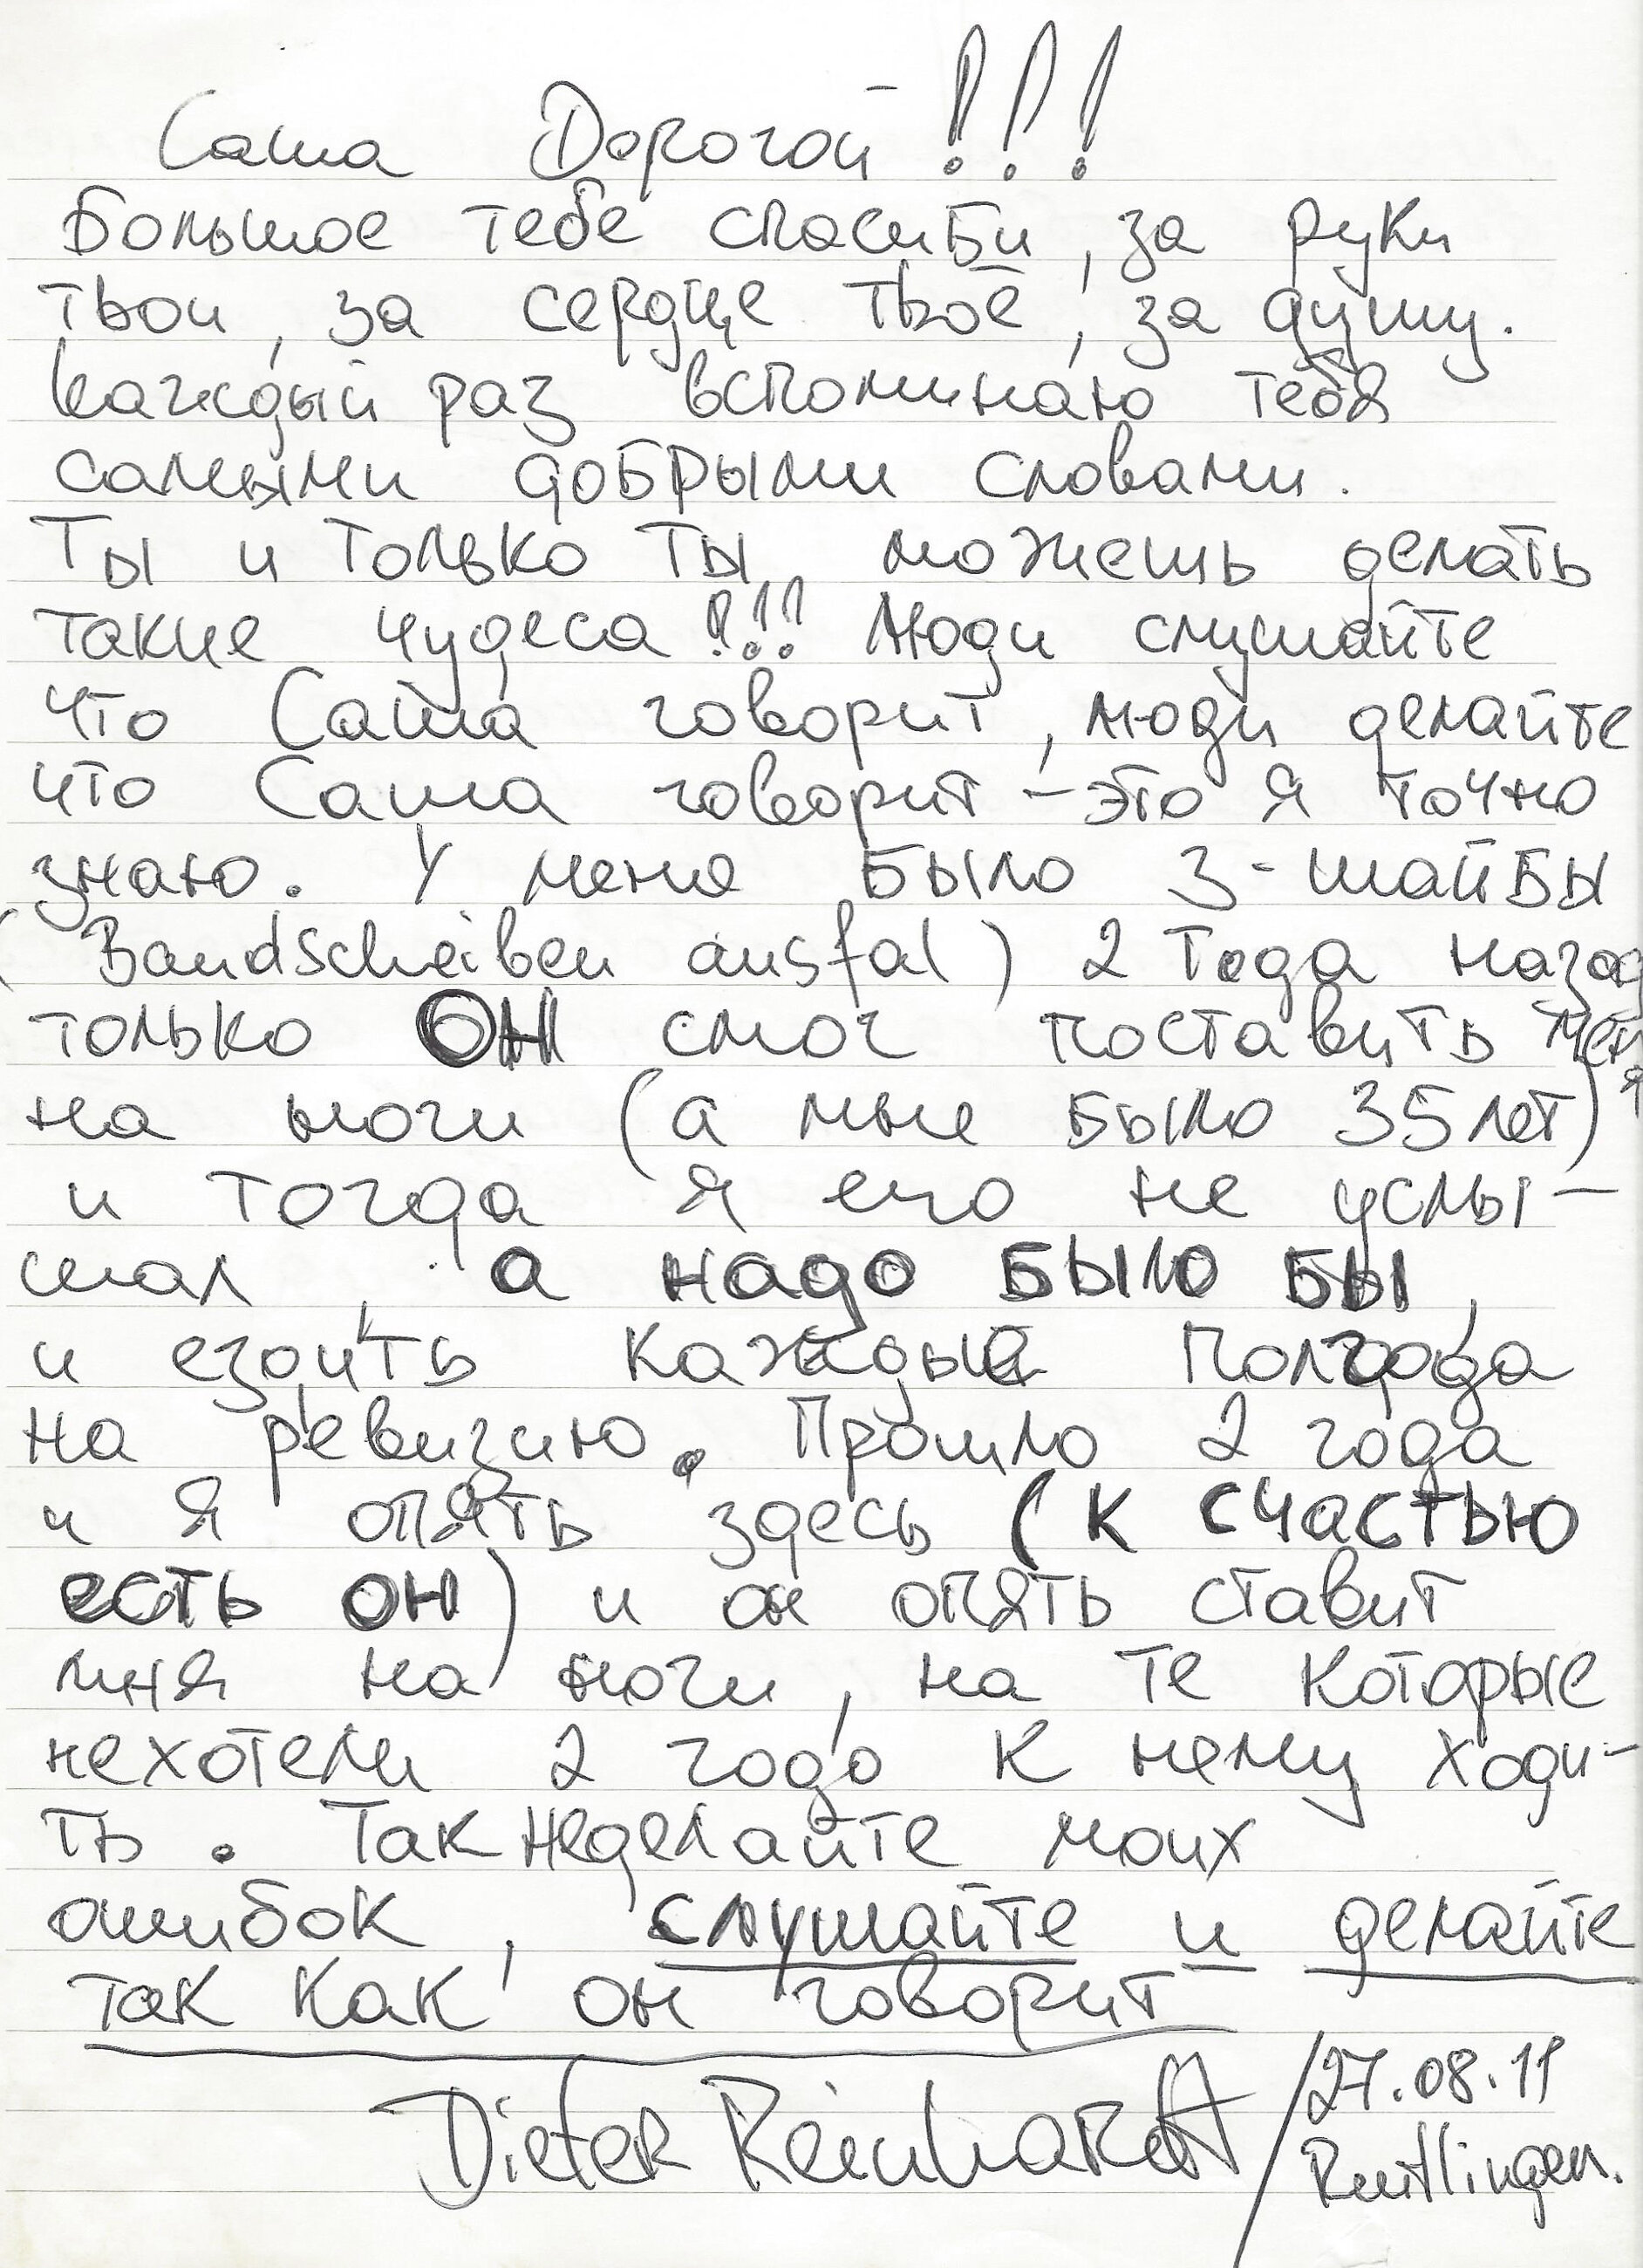 Саша Дорогой!!!
Большое тебе спасиби, за руки
твои, за сердце твоё, за душу.
Каждый раз вспоминаю тебя
самыми добрыми словами.
Ты и только ты можешь делать
такие чудеса!!! Люди слушайте
что Саша говорит, люди делайте
что Саша говорит - это я точно
знаю. У меня было 3-шайбы
(Bandscheiben ausfal) 2 года назад
только ОН смог поставить меня
на ноги (а мне было 35 лет)
и тогда я его не услы-
шал, а надо было бы,
и ездить каждые полгода
на ревизию. Прошло 2 года
и я опять здесь (к счастью
есть он) и он опять ставит
мня на ноги, на те которые
нехотели 2 годо к нему ходи-
ть. Так неделайте моих
ошибок, слушайте и делайте
так как он говорит
Dieter Reinhardt / 27.08.11
Reutlingen.